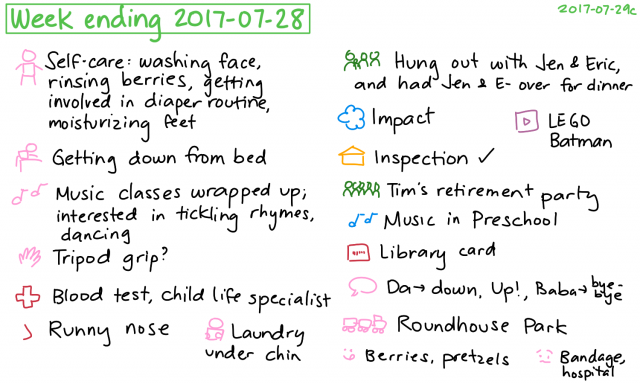 Week ending 2017-07-28
2017-07-29c
Self-care: washing face,
rinsing berries, getting
involved in diaper routine,
moisturizing feet
Getting down from bed
Music classes wrapped up;
interested in tickling rhymes,
dancing
Tripod grip?
Blood test, child life specialist
Runny nose
Laundry
under chin
Hung out with Jen & Eric,
and had Jen & E- over for dinner
Impact
LEGO
Batman
Inspection ✓
Tim's retirement party
Music in Preschool
Library card
Da→ down, Up!, Baba→ bye-
bye
Roundhouse Park
Berries, pretzels
Bandage,
hospital